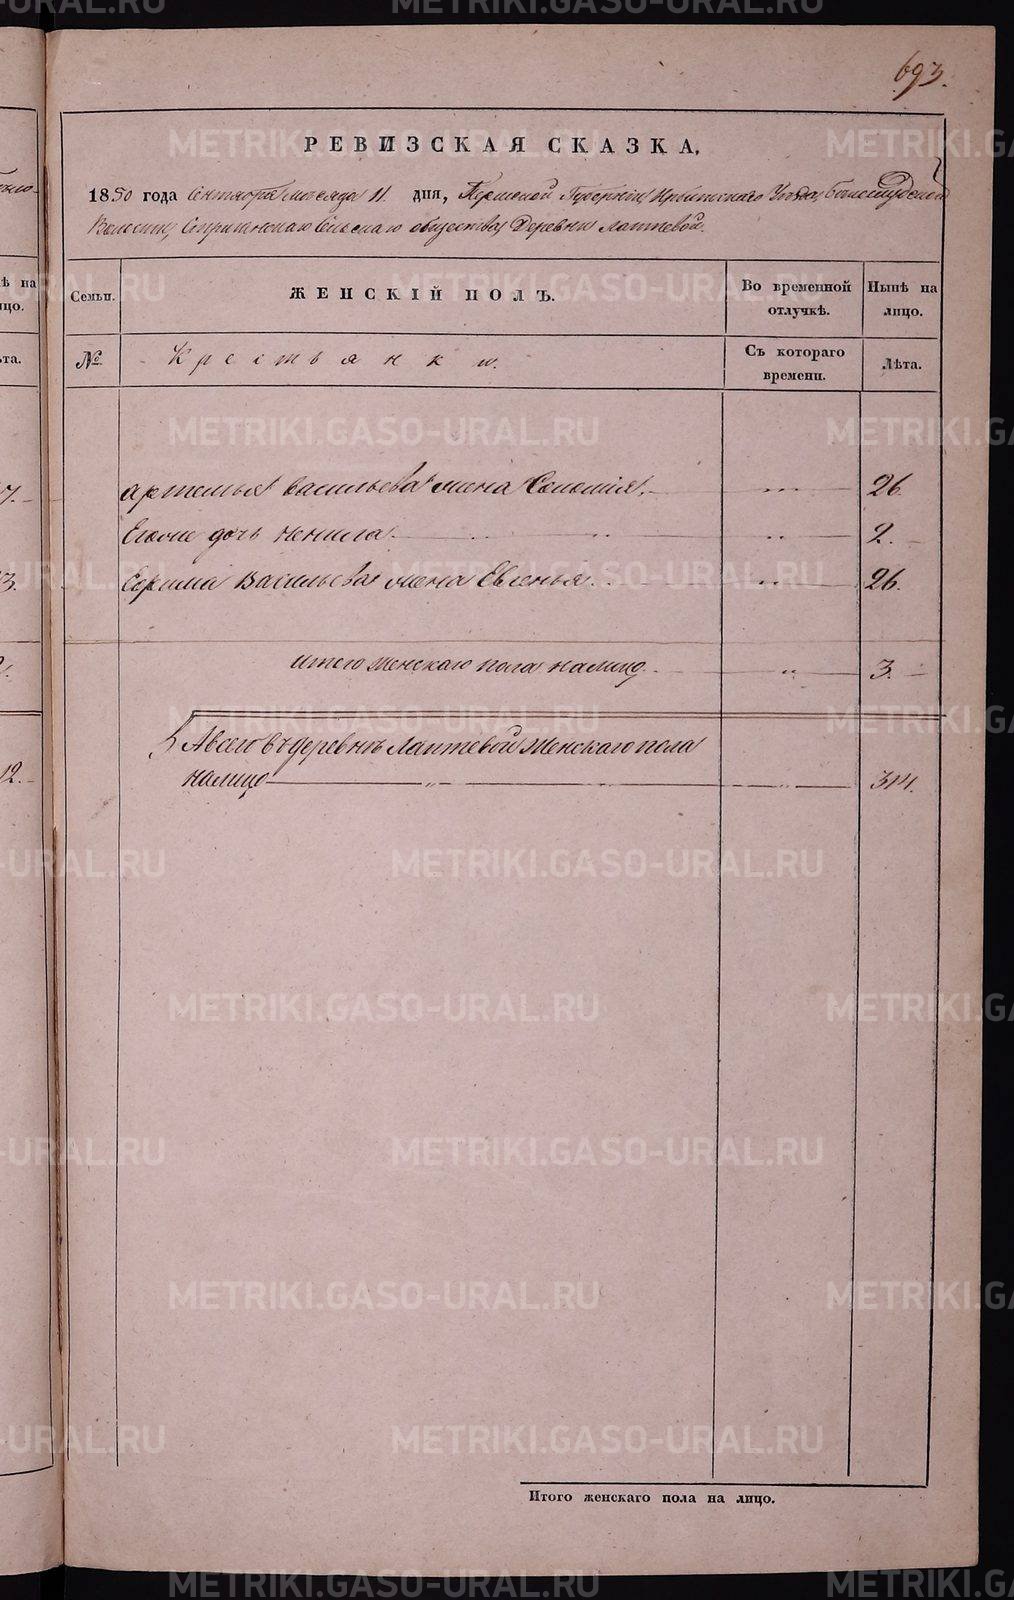 693.
РЕВИЗСКАЯ СКАЗКА,
1850 года Сентября месяца 11 дня, Пермской Губернии, Ирбитского Уезда,
Волости, Сельскаго общества, Деревни Лаптевой.
Семьи. ЖЕНСКІЙ ПОЛЪ. Во временной отлучкѣ. Нынѣ на лицо.
№ Крестьянки. Съ котораго времени. Лѣта.
Артемья Васильева жена Соломія. 26.
Его дочь Ненила. 2.
Васильева жена Евгенья. 26.
Итого женскаго пола налицо. 3.
А всего въ деревнѣ Лаптевой женскаго пола
налицо 314.
Итого женскаго пола на лицо.
ѣ на
цо.
та.
7.
3.
12.
METRIKI.GASO-URAL.RU